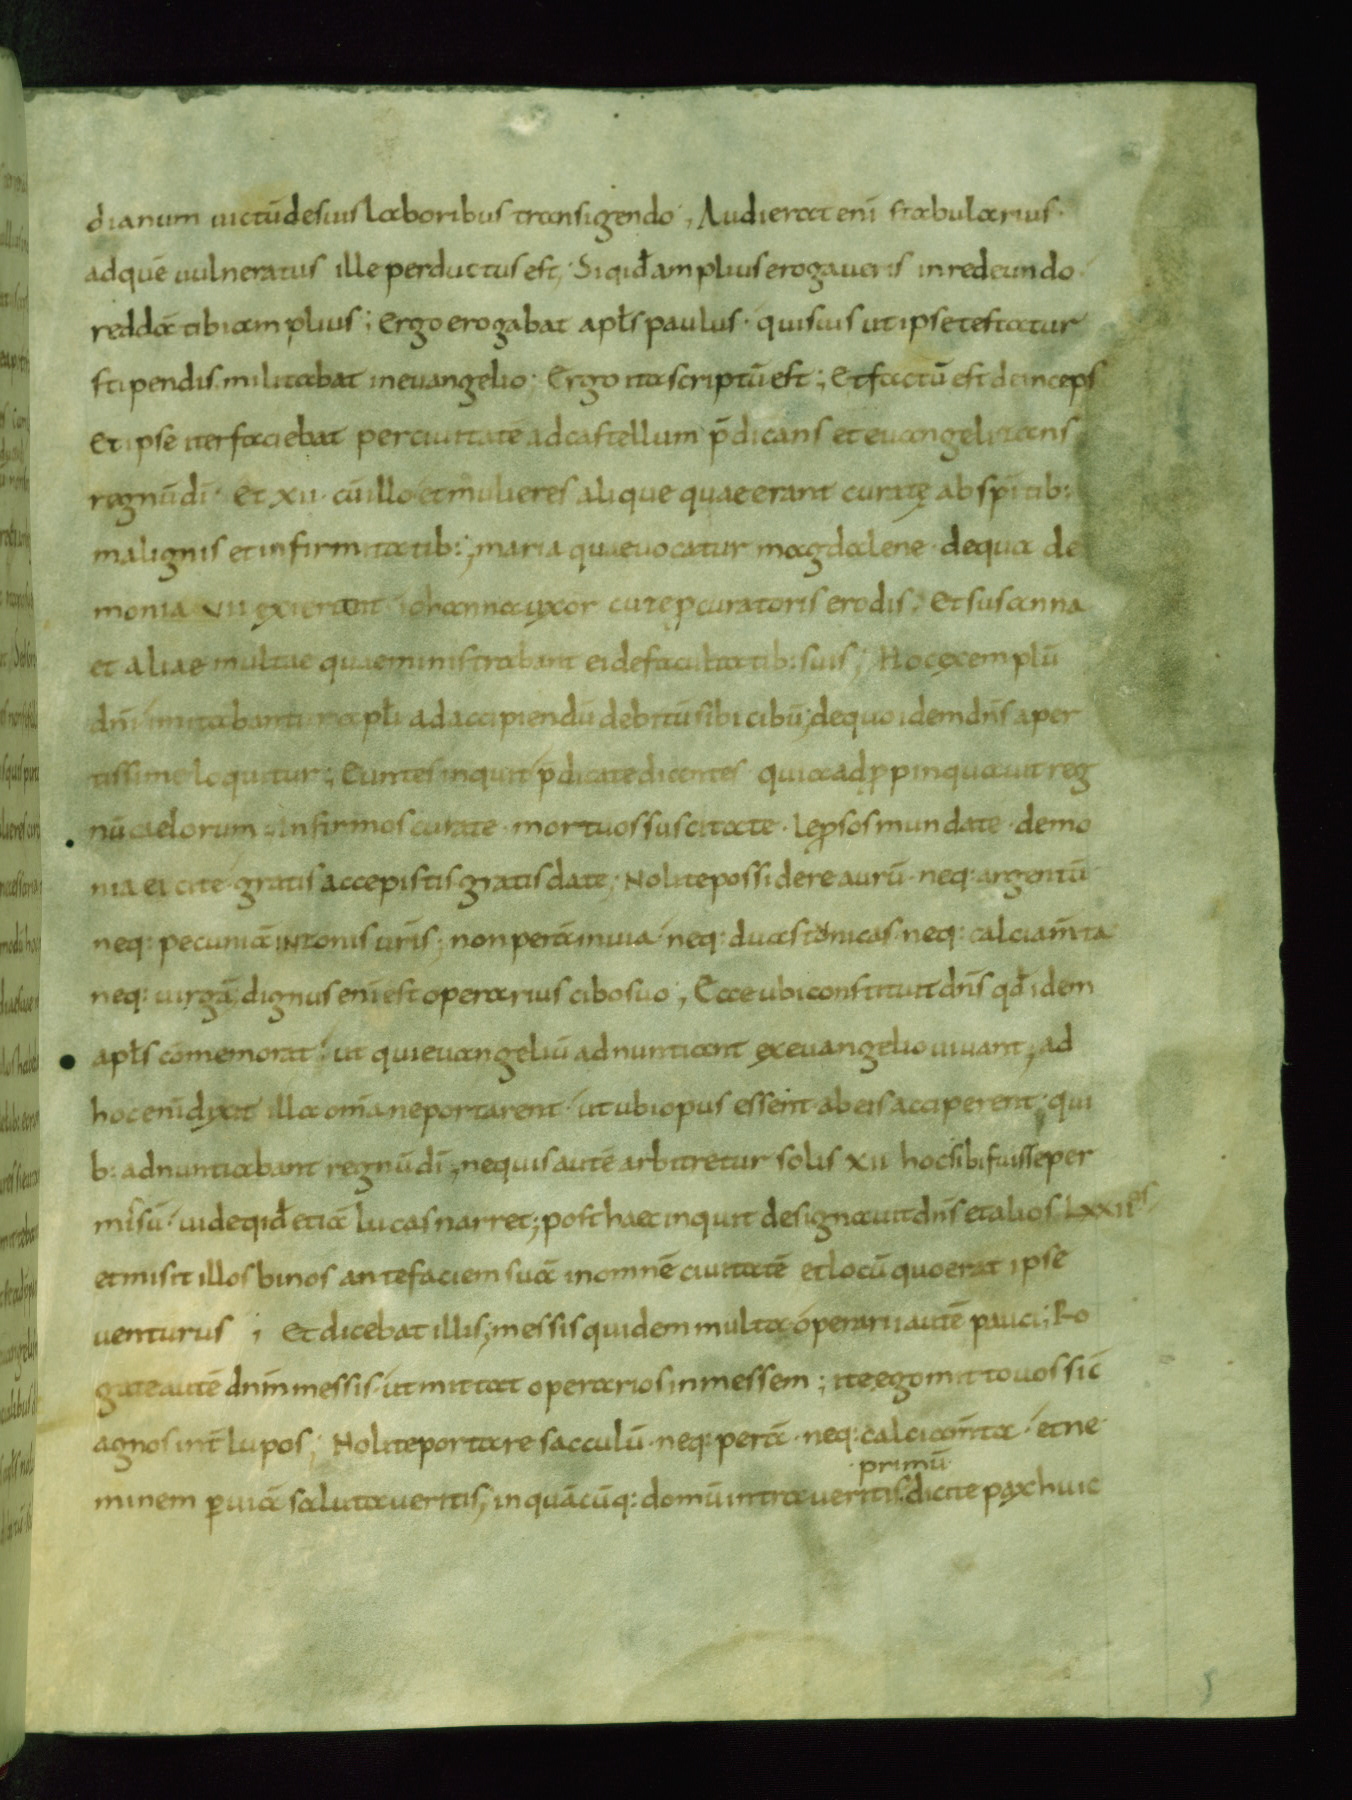 dianum uictū desuis laboribus transigendo; Audierat enī stabularius·
ad quē uulneratus ille perductus est; Si qid̄ amplius erogaueris in redeundo
reddā tibi amplius; Ergo erogabat apl̄s paulus· qui suis ut ipse testatur
stipendis militabat in euangelio· Ergo ita scriptū est; Et factū est deinceps
Et ipse iter faciebat per ciuitatē ad castellum p̄dicans et euangelizans
regnū dī· Et xii· cū illo et mulieres alique quae erant curatę ab spītib:
malignis et infirmitatib:; maria quae uocatur magdalene· de qua de
monia vii exierant iohanna uxor cuze ꝓcuratoris erodis; Et susanna
et aliae multae quae ministrabant ei de facultatib: suis; Hoc exemplū
dn̄i imitabantur apl̄i ad accipiendū debitū sibi cibū; de quo idem dn̄s aper
tissime loquitur; Euntes inquit p̄dicate dicentes· quia adꝓpinquauit reg
nū caelorum; Infirmos curate· mortuos suscitate· leprosos mundate· demo
nia eicite· gratis accepistis gratis date; Nolite possidere aurū· neq: argentū
neq: pecuniā in zonis ur̄is; non perā in uia· neq: duas tonicas· neq: calciam̄ta
neq: uirgā; dignus enī est operarius cibo suo; Ecce ubi constituit dn̄s qd̄ idem
apl̄s cōmemorat· ut qui euangeliū adnuntiant ex euangelio uiuant; ad
hoc enī dixit illa om̄ia ne portarent· ut ubi opus essent ab eis acciperent; qui
b: adnuntiabant regnū dī; ne quis autē arbitretur solis xii hoc sibi fuisse per
mīsū· uide qid̄ etiā lucas narret; post haec inquit designauit dn̄s et alios lxxii os
et misit illos binos ante faciem suā in omnē ciuitatē et locū quo erat ipse
uenturus; Et dicebat illis; messis quidem multa· operarii autē pauci; Ro
gate autē dnm̄ messis· ut mittat operarios in messem; ite ego mitto uos sic̄
agnos int̄ lupos; Nolite portare sacculū· neq: perā· neq: calciam̄ta· et ne
primū
minem ꝑ uiā salutaueritis; in quācūq: domū intraueritis· dicite pax huic